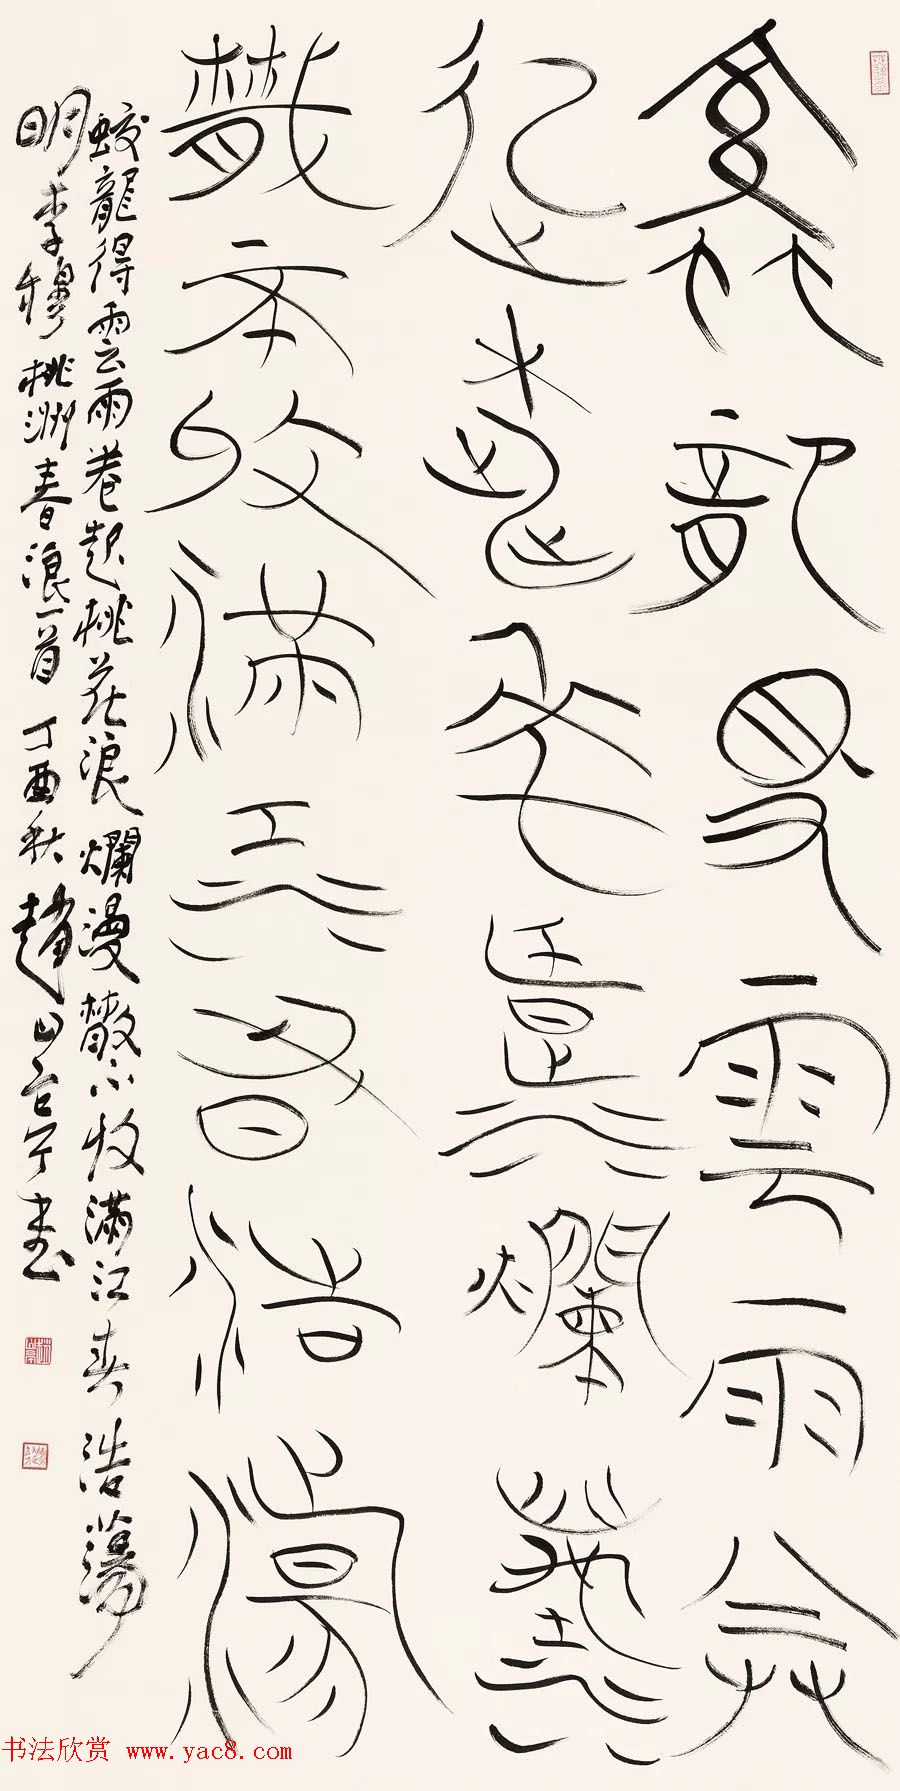 蛟龍得雲雨卷
起桃花浪爛漫
散不收滿江春浩蕩
蛟龍得雲雨卷起桃花浪爛漫散不收滿江春浩蕩
明李穆桃洲春浪一首丁酉秋趙山亭書
书法欣赏 www.yac8.com